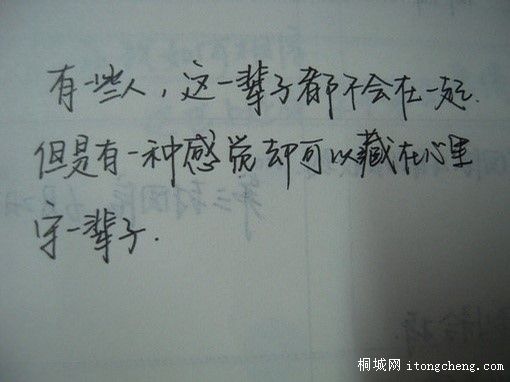 有一些人，这一辈子都不会在一起.
但是有一种感觉却可以藏在心里
守一辈子.
桐城网 itongcheng.com